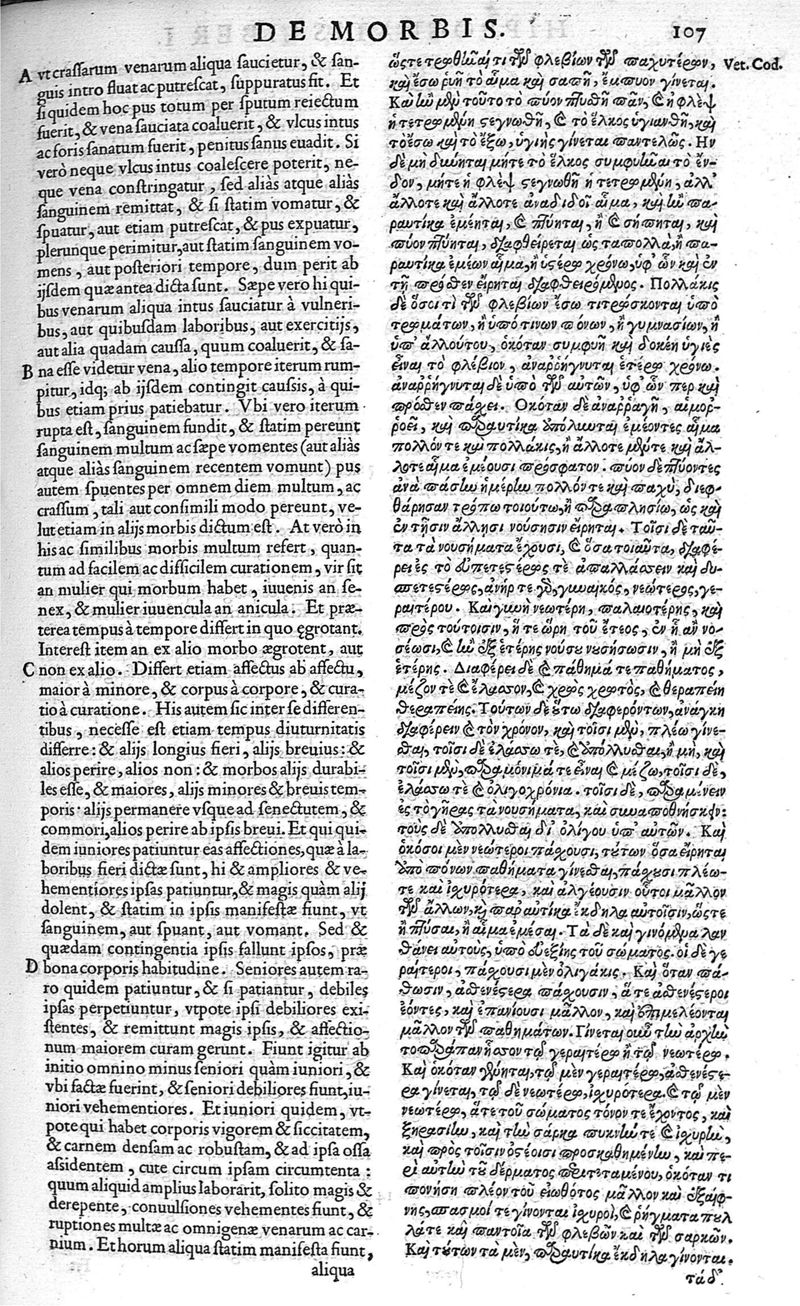 DE MORBIS. 107
A vt crassarum venarum aliqua saucietur, & san-
guis intro fluat ac putrescat, suppuratus fit. Et
si quidem hoc pus totum per sputum reiectum
fuerit, & vena sauciata coaluerit, & vlcus intus
ac foris sanatum fuerit, penitus sanus euadit. Si
verò neque vlcus intus coalescere poterit, ne-
que vena constringatur, sed aliàs atque aliàs
sanguinem remittat, & si statim vomatur, &
spuatur, aut etiam putrescat, & pus expuatur,
plerunque perimitur, aut statim sanguinem vo-
mens, aut posteriori tempore, dum perit ab
ijsdem quæ antea dicta sunt. Sæpe vero hi qui-
bus venarum aliqua intus sauciatur à vulneri-
bus, aut quibusdam laboribus, aut exercitijs,
aut alia quadam caussa, quum coaluerit, & sa-
B na esse videtur vena, alio tempore iterum rum-
pitur, idq; ab ijsdem contingit caussis, à qui-
bus etiam prius patiebatur. Vbi vero iterum
rupta est, sanguinem fundit, & statim pereunt
sanguinem multum ac sæpe vomentes (aut aliàs
atque aliàs sanguinem recentem vomunt) pus
autem spuentes per omnem diem multum, ac
crassum, tali aut consimili modo pereunt, ve-
lut etiam in alijs morbis dictum est. At verò in
his ac similibus morbis multum refert, quan-
tum ad facilem ac difficilem curationem, vir sit
an mulier qui morbum habet, iuuenis an se-
nex, & mulier iuuencula an anicula. Et præ-
terea tempus à tempore differt in quo ęgrotant.
Interest item an ex alio morbo ægrotent, aut
C non ex alio. Differt etiam affectus ab affectu,
maior à minore, & corpus à corpore, & cura-
tio à curatione. His autem sic inter se differen-
tibus, necesse est etiam tempus diuturnitatis
differre: & alijs longius fieri, alijs breuius: &
alios perire, alios non: & morbos alijs durabi-
les esse, & maiores, alijs minores & breuis tem-
poris: alijs permanere vsque ad senectutem, &
commori, alios perire ab ipsis breui. Et qui qui-
dem iuniores patiuntur eas affectiones, quæ à la-
boribus fieri dictæ sunt, hi & ampliores & ve-
hementiores ipsas patiuntur, & magis quàm alij
dolent, & statim in ipsis manifestæ fiunt, vt
sanguinem, aut spuant, aut vomant. Sed &
quædam contingentia ipsis fallunt ipsos, præ
D bona corporis habitudine. Seniores autem ra-
ro quidem patiuntur, & si patiantur, debiles
ipsas perpetiuntur, vtpote ipsi debiliores exi-
stentes, & remittunt magis ipsis, & affectio-
num maiorem curam gerunt. Fiunt igitur ab
initio omnino minus seniori quàm iuniori, &
vbi factæ fuerint, & seniori debiliores fiunt, iu-
niori vehementiores. Et iuniori quidem, vt-
pote qui habet corporis vigorem & siccitatem,
& carnem densam ac robustam, & ad ipsa ossa
assidentem, cute circum ipsam circumtenta:
quum aliquid amplius laborarit, solito magis &
derepente, conuulsiones vehementes fiunt, &
ruptiones multæ ac omnigenæ venarum ac car-
nium. Et horum aliqua statim manifesta fiunt,
aliqua
ὥςτε τρωθῆναί τι τῶν φλεβίων τῶν παχυτέρων, Vet. Cod.
καὶ ἔσω ῥυῇ τὸ αἷμα καὶ σαπῇ, ἔμπυον γίνεται.
Καὶ ἢν μὲν τοῦτο τὸ πύον πτυσθῇ πᾶν, καὶ ἡ φλὲψ
ἡ τετρωμένη στεγνωθῇ, καὶ τὸ ἕλκος ὑγιανθῇ, καὶ
τὸ ἔσω καὶ τὸ ἔξω, ὑγιὴς γίνεται παντελῶς. Ἢν
δὲ μὴ δύνηται μήτε τὸ ἕλκος συμφῦναι τὸ ἔν-
δον, μήτε ἡ φλὲψ στεγνωθῇ ἡ τετρωμένη, ἀλλ'
ἄλλοτε καὶ ἄλλοτε ἀναδιδοῖ αἷμα, καὶ ἢν πα-
ραυτίκα ἐμέηται, καὶ πτύηται, ἢ καὶ σήπηται, καὶ
πύον πτύηται, διαφθείρεται ὡς τὰ πολλὰ, ἢ πα-
ραυτίκα ἐμέων αἷμα, ἢ ὑστέρῳ χρόνῳ, ὑφ' ὧν καὶ ἐν
τῇ πρόσθεν εἴρηται διαφθειρόμενος. Πολλάκις
δὲ ὅσοι τὶ τῶν φλεβίων ἔσω τιτρώσκονται ὑπὸ
τρωμάτων, ἢ ὑπό τινων πόνων, ἢ γυμνασίων, ἢ
ὑπ' ἄλλου του, ὁκόταν συμφυῇ καὶ δοκέῃ ὑγιὲς
εἶναι τὸ φλεβίον, ἀναρρήγνυται ἑτέρῳ χρόνῳ.
ἀναρρήγνυται δὲ ὑπὸ τῶν αὐτῶν, ὑφ' ὧν περ καὶ
πρόσθεν πάσχει. Ὁκόταν δὲ ἀναρραγῇ, αἱμορ-
ροεῖ, καὶ παραυτίκα ἀπόλλυνται ἐμέοντες αἷμα
πολλόν τε καὶ πολλάκις, ἢ ἄλλοτε μέν τε καὶ ἄλ-
λοτε αἷμα ἐμέουσι πρόσφατον. πύον δὲ πτύοντες
ἀνὰ πᾶσαν ἡμέρην πολλόν τε καὶ παχὺ, διεφ-
θάρησαν τρόπῳ τοιούτῳ, ἢ παραπλησίῳ, ὡς καὶ
ἐν τῇσιν ἄλλῃσι νούσησιν εἴρηται. Τοῖσι δὲ ταῦ-
τα τὰ νουσήματα ἔχουσι, καὶ ὅσα τοιαῦτα, διαφέ-
ρει ἐς τὸ εὐπετέστερός τε ἀπαλλάσσειν καὶ δυ-
πετέστερος, ἀνήρ τε γὰρ, γυναικὸς, νεώτερος, γε-
ραιτέρου. Καὶ γυνὴ νεωτέρη, παλαιοτέρης, καὶ
πρὸς τούτοισιν, ἥ τε ὥρη τοῦ ἔτεος, ἐν ᾗ ἂν νο-
σέωσι, καὶ ἢν ἐξ ἑτέρης νούσου νοσήσωσιν, ἢ μὴ ἐξ
ἑτέρης. Διαφέρει δὲ καὶ πάθημά τε παθήματος,
μέζον τὲ καὶ ἔλασσον, καὶ χρὼς χρωτὸς, καὶ θεραπείη
θεραπείης. Τούτων δὲ οὕτω διαφερόντων, ἀνάγκη
διαφέρειν καὶ τὸν χρόνον, καὶ τοῖσι μὲν, πλέω γίνε-
σθαι, τοῖσι δὲ ἐλάσσω τε, καὶ ἀπόλλυσθαι, ἢ μὴ, καὶ
τοῖσι μὲν, παραμόνιμά τε εἶναι καὶ μέζω, τοῖσι δὲ,
ἐλάσσω τε καὶ ὀλιγοχρόνια. τοῖσι δὲ, παραμένειν
ἐς τὸ γῆρας τὰ νουσήματα, καὶ συναποθνήσκειν:
τοὺς δὲ ἀπόλλυσθαι δι' ὀλίγου ὑπ' αὐτῶν. Καὶ
ὁκόσοι μὲν νεώτεροι πάσχουσι, τούτων ὅσα εἴρηται
ὑπὸ πόνων παθήματα γίνεσθαι, πάσχουσι πλέω-
τε καὶ ἰσχυρότερα, καὶ ἀλγέουσιν οὗτοι μᾶλλον
τῶν ἄλλων, καὶ παραυτίκα ἔκδηλα αὐτοῖσιν, ὥςτε
ἢ πτύσαι, ἢ αἷμα ἐμέσαι. Τὰ δὲ καὶ γινόμενα λαν
θάνει αὐτοὺς, ὑπὸ εὐεξίης τοῦ σώματος. οἱ δὲ γε-
ραίτεροι, πάσχουσι μὲν ὀλιγάκις. Καὶ ὅταν πά-
θωσιν, ἀσθενέστερα πάσχουσιν, ἅ τε ἀσθενέστεροι
ἐόντες, καὶ ἐπανίουσι μᾶλλον, καὶ ἐπιμελέονται
μᾶλλον τῶν παθημάτων. Γίνεται οὖν τὴν ἀρχὴν
τοπαράπαν ἧσσον τῷ γεραιτέρῳ ἢ τῷ νεωτέρῳ.
Καὶ ὁκόταν γένηται, τῷ μὲν γεραιτέρῳ, ἀσθενέστε-
ρα γίνεται, τῷ δὲ νεωτέρῳ, ἰσχυρότερα. καὶ τῷ μὲν
νεωτέρῳ, ἅ τε τοῦ σώματος τόνον τε ἔχοντος, καὶ
ξηρασίην, καὶ τὴν σάρκα πυκνήν τε καὶ ἰσχυρὴν,
καὶ πρὸς τοῖσιν ὀστέοισι προσκαθημένην, καὶ πε-
ρὶ αὐτὴν τοῦ δέρματος περιτεταμένου, ὁκόταν τι
πονήσῃ πλέον τοῦ εἰωθότος μᾶλλον καὶ ἐξαίφ-
νης, σπασμοί τε γίνονται ἰσχυροὶ, καὶ ῥήγματα πολ
λά τε καὶ παντοῖα τῶν φλεβῶν καὶ τῶν σαρκῶν.
Καὶ τούτων τὰ μὲν, παραυτίκα ἔκδηλα γίνονται.
τὰ δ'